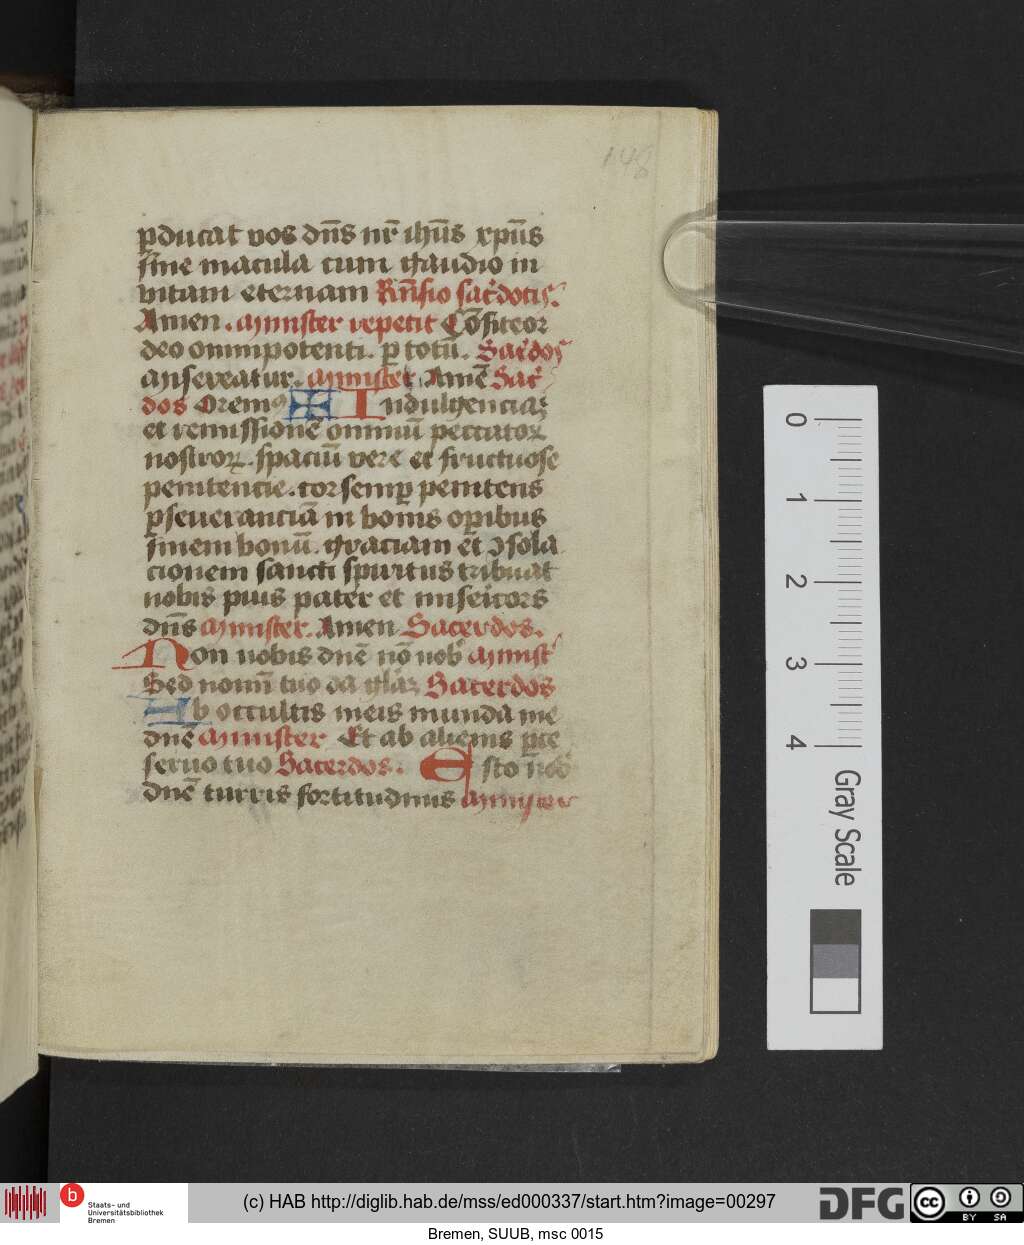 148
pducat vos dn̄s nr̄ ihūs xpūs
sine macula cum gaudio in
vitam eternam Rn̄sio sac̄dotis.
Amen. Minister repetit Cōfiteor
deo omnipotenti. p totū. Sac̄dos
Misereatur. Minister Amē Sac̄
dos Oremꝰ Indulgenciaꝫ
et remissionē omniū peccatoꝝ
nostroꝝ. spaciū vere et fructuose
penitencie. cor semꝑ penitens
ꝑseueranciā in bonis oꝑibus
finem bonū. graciam et ꝯsola
cionem sancti spiritus tribuat
nobis pius pater et miseꝛicors
dn̄s Minister. Amen Sacerdos.
Non nobis dnē nō nob̄ Minist̄
Sed nomī tuo da glaꝫ Sacerdos
Ab occultis meis munda me
dnē Minister Et ab alienis ꝑce
seruo tuo Sacerdos. Esto nob̄
dnē turris fortitudinis Minister
0 1 2 3 4 Gray Scale
Staats- und
Universitätsbibliothek
Bremen
(c) HAB http://diglib.hab.de/mss/ed000337/start.htm?image=00297
DFG
cc BY SA
Bremen, SUUB, msc 0015